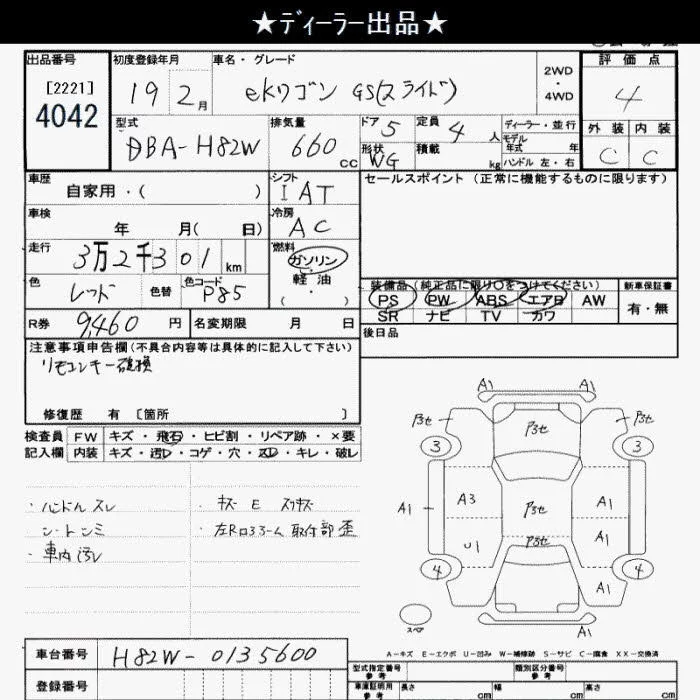 ★ディーラー出品★
出品番号
[2221]
4042
初度登録年月
19 2月
車名・グレード
ekワゴン GS(スライド)
2WD
・
4WD
評価点
4
外装 内装
C C
型式
DBA-H82W
排気量
660 cc
ドア 5
形状 WG
定員 4 人
積載 kg
ディーラー・並行
モデル年式 年
ハンドル 左・右
車歴
自家用・( )
シフト
IAT
セールスポイント (正常に機能するものに限ります)
車検
年 月( 日)
冷房
AC
走行
3万2千301 km
燃料
ガソリン
・
軽油
( ・ )
色
レッド
色替
色コード
P85
装備品 (純正品に限り○をつけてください)
PS PW ABS エアB AW
SR ナビ TV カワ
新車保証書
有・無
R券 9,460 円
名変期限 月 日
後日品
注意事項申告欄 (不具合内容等は具体的に記入して下さい)
リモコンキー破損
修復歴 有 [箇所 ]
検査員 FW キズ・飛石・ヒビ割・リペア跡・×要
記入欄 内装 キズ・汚レ・コゲ・穴・スレ・キレ・破レ
・ハンドルスレ
シートシミ
・車内汚レ
・キズ E スリキズ
・左Rロアアーム取付部歪
A1 A1
アセ アセ アセ
3 3
A1 A3 アセ A1
U1 アセ A1
4 A1 4
スペア
A1
A-キズ E-エクボ U-凹み W-補修跡 S-サビ C-腐食 XX-交換済
車台番号 H82W-0135600
登録番号
型式指定番号 参考
類別区分番号 参考
車庫証明用 参考
長さ cm 幅 cm 高さ cm